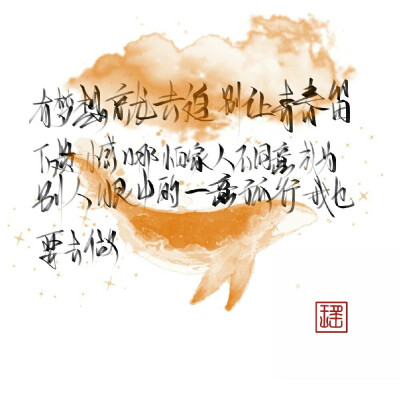 有梦想就去追 别让青春留
下遗憾哪怕家人不同意成为
别人眼中的一意孤行我也
要去做
瑶